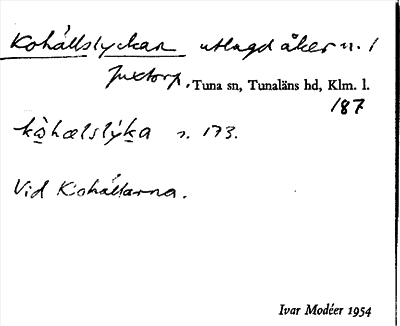 Kohållslyckan utlagd åker n. 1
Juxtorp, Tuna sn, Tunaläns hd, Klm. l.
187
kòhælslýka s. 173.
Vid Kohållarna.
Ivar Modéer 1954